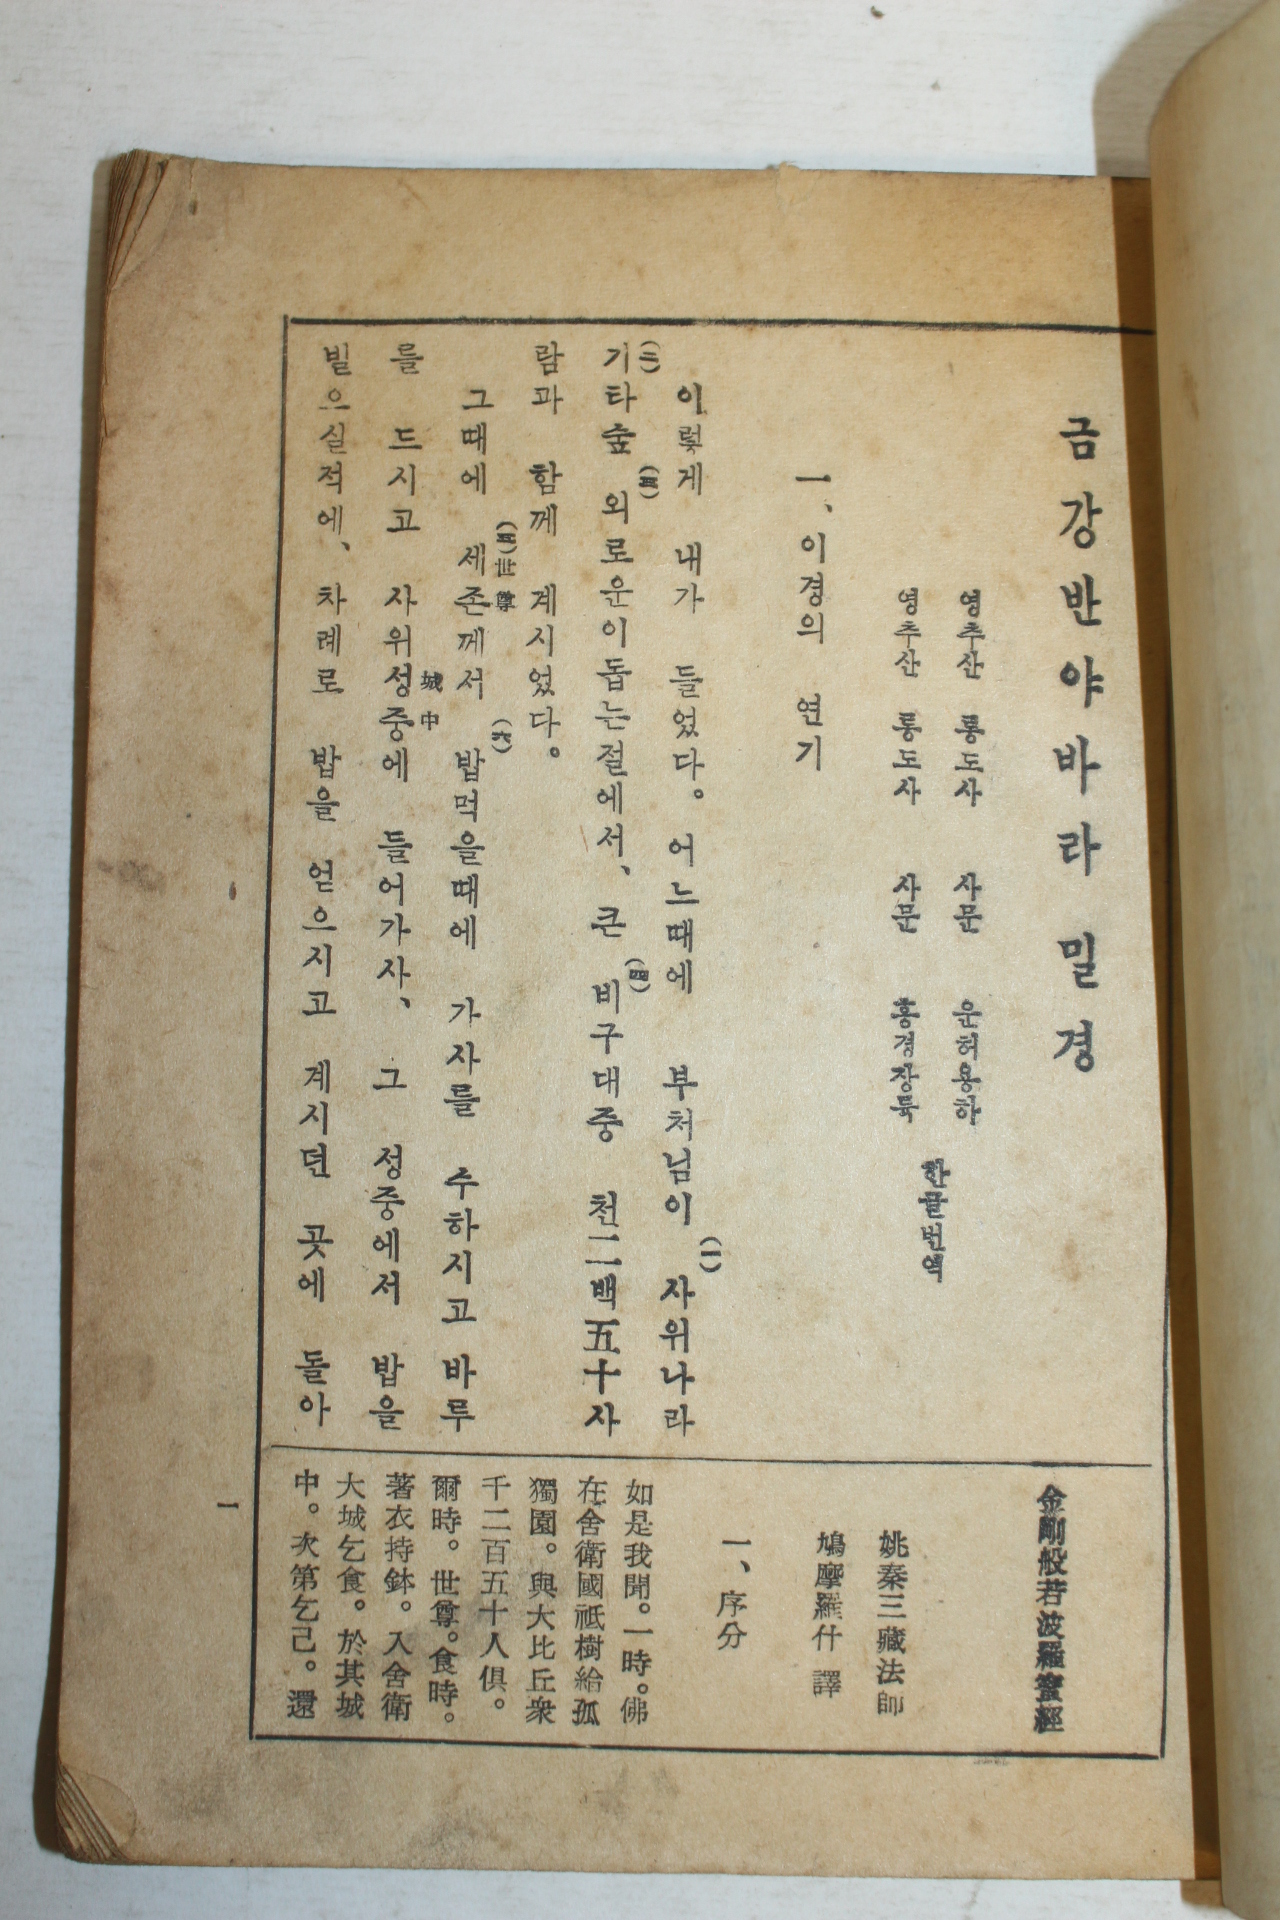 금강반야바라밀경
영추산 통도사 사문 운허용하
영추산 통도사 사문 홍경장육
한글번역
一、이경의 연기
이렇게 내가 들었다。어느때에 부처님이 사위나라
(一)
기타숲 외로운이돕는절에서、큰 비구대중 천二백五十사
(二) (三) (四)
람과 함께 계시었다。
그때에 세존께서 밥먹을때에 가사를 수하시고 바루
(五)世尊 (六)
를 드시고 사위성중에 들어가사、그 성중에서 밥을
城中
빌으실적에、차례로 밥을 얻으시고 계시던 곳에 돌아
金剛般若波羅蜜經
姚秦三藏法師
鳩摩羅什 譯
一、序分
如是我聞。一時。佛
在舍衛國祗樹給孤
獨園。與大比丘衆
千二百五十人俱。
爾時。世尊。食時。
著衣持鉢。入舍衛
大城乞食。於其城
中。次第乞己。還
一